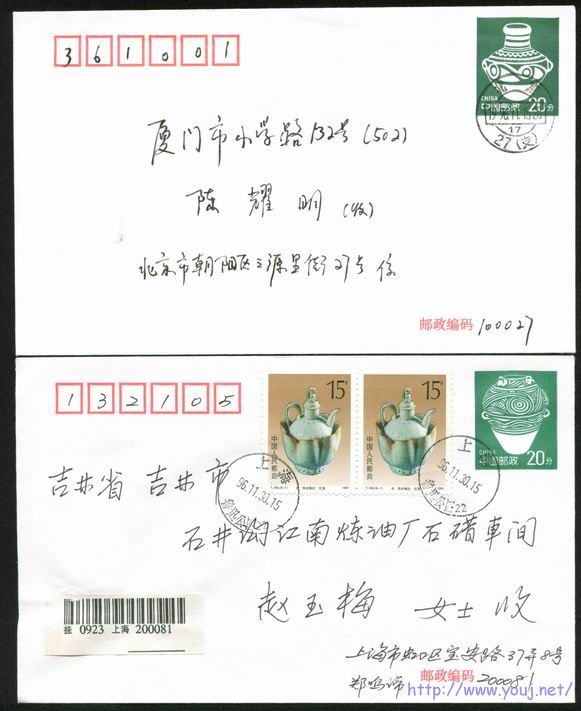 361001
CHINA
中国邮政 20分
17
27(支)
厦门市小学路132号(502)
陈耀明(收)
北京市朝阳区三源里街27号 
邮政编码 100027
132105
15分 15分
中国人民邮政 中国人民邮政
CHINA
中国邮政 20分
上海
96.11.30.15
上
96.11.30.15
22
吉林省吉林市
江南炼油厂石蜡车间
赵玉梅 女士 收
挂 0923 上海 200081
上海市虹口区宝安路37弄8号
邮政编码
郑鸣 200081
http://www.youj.net/